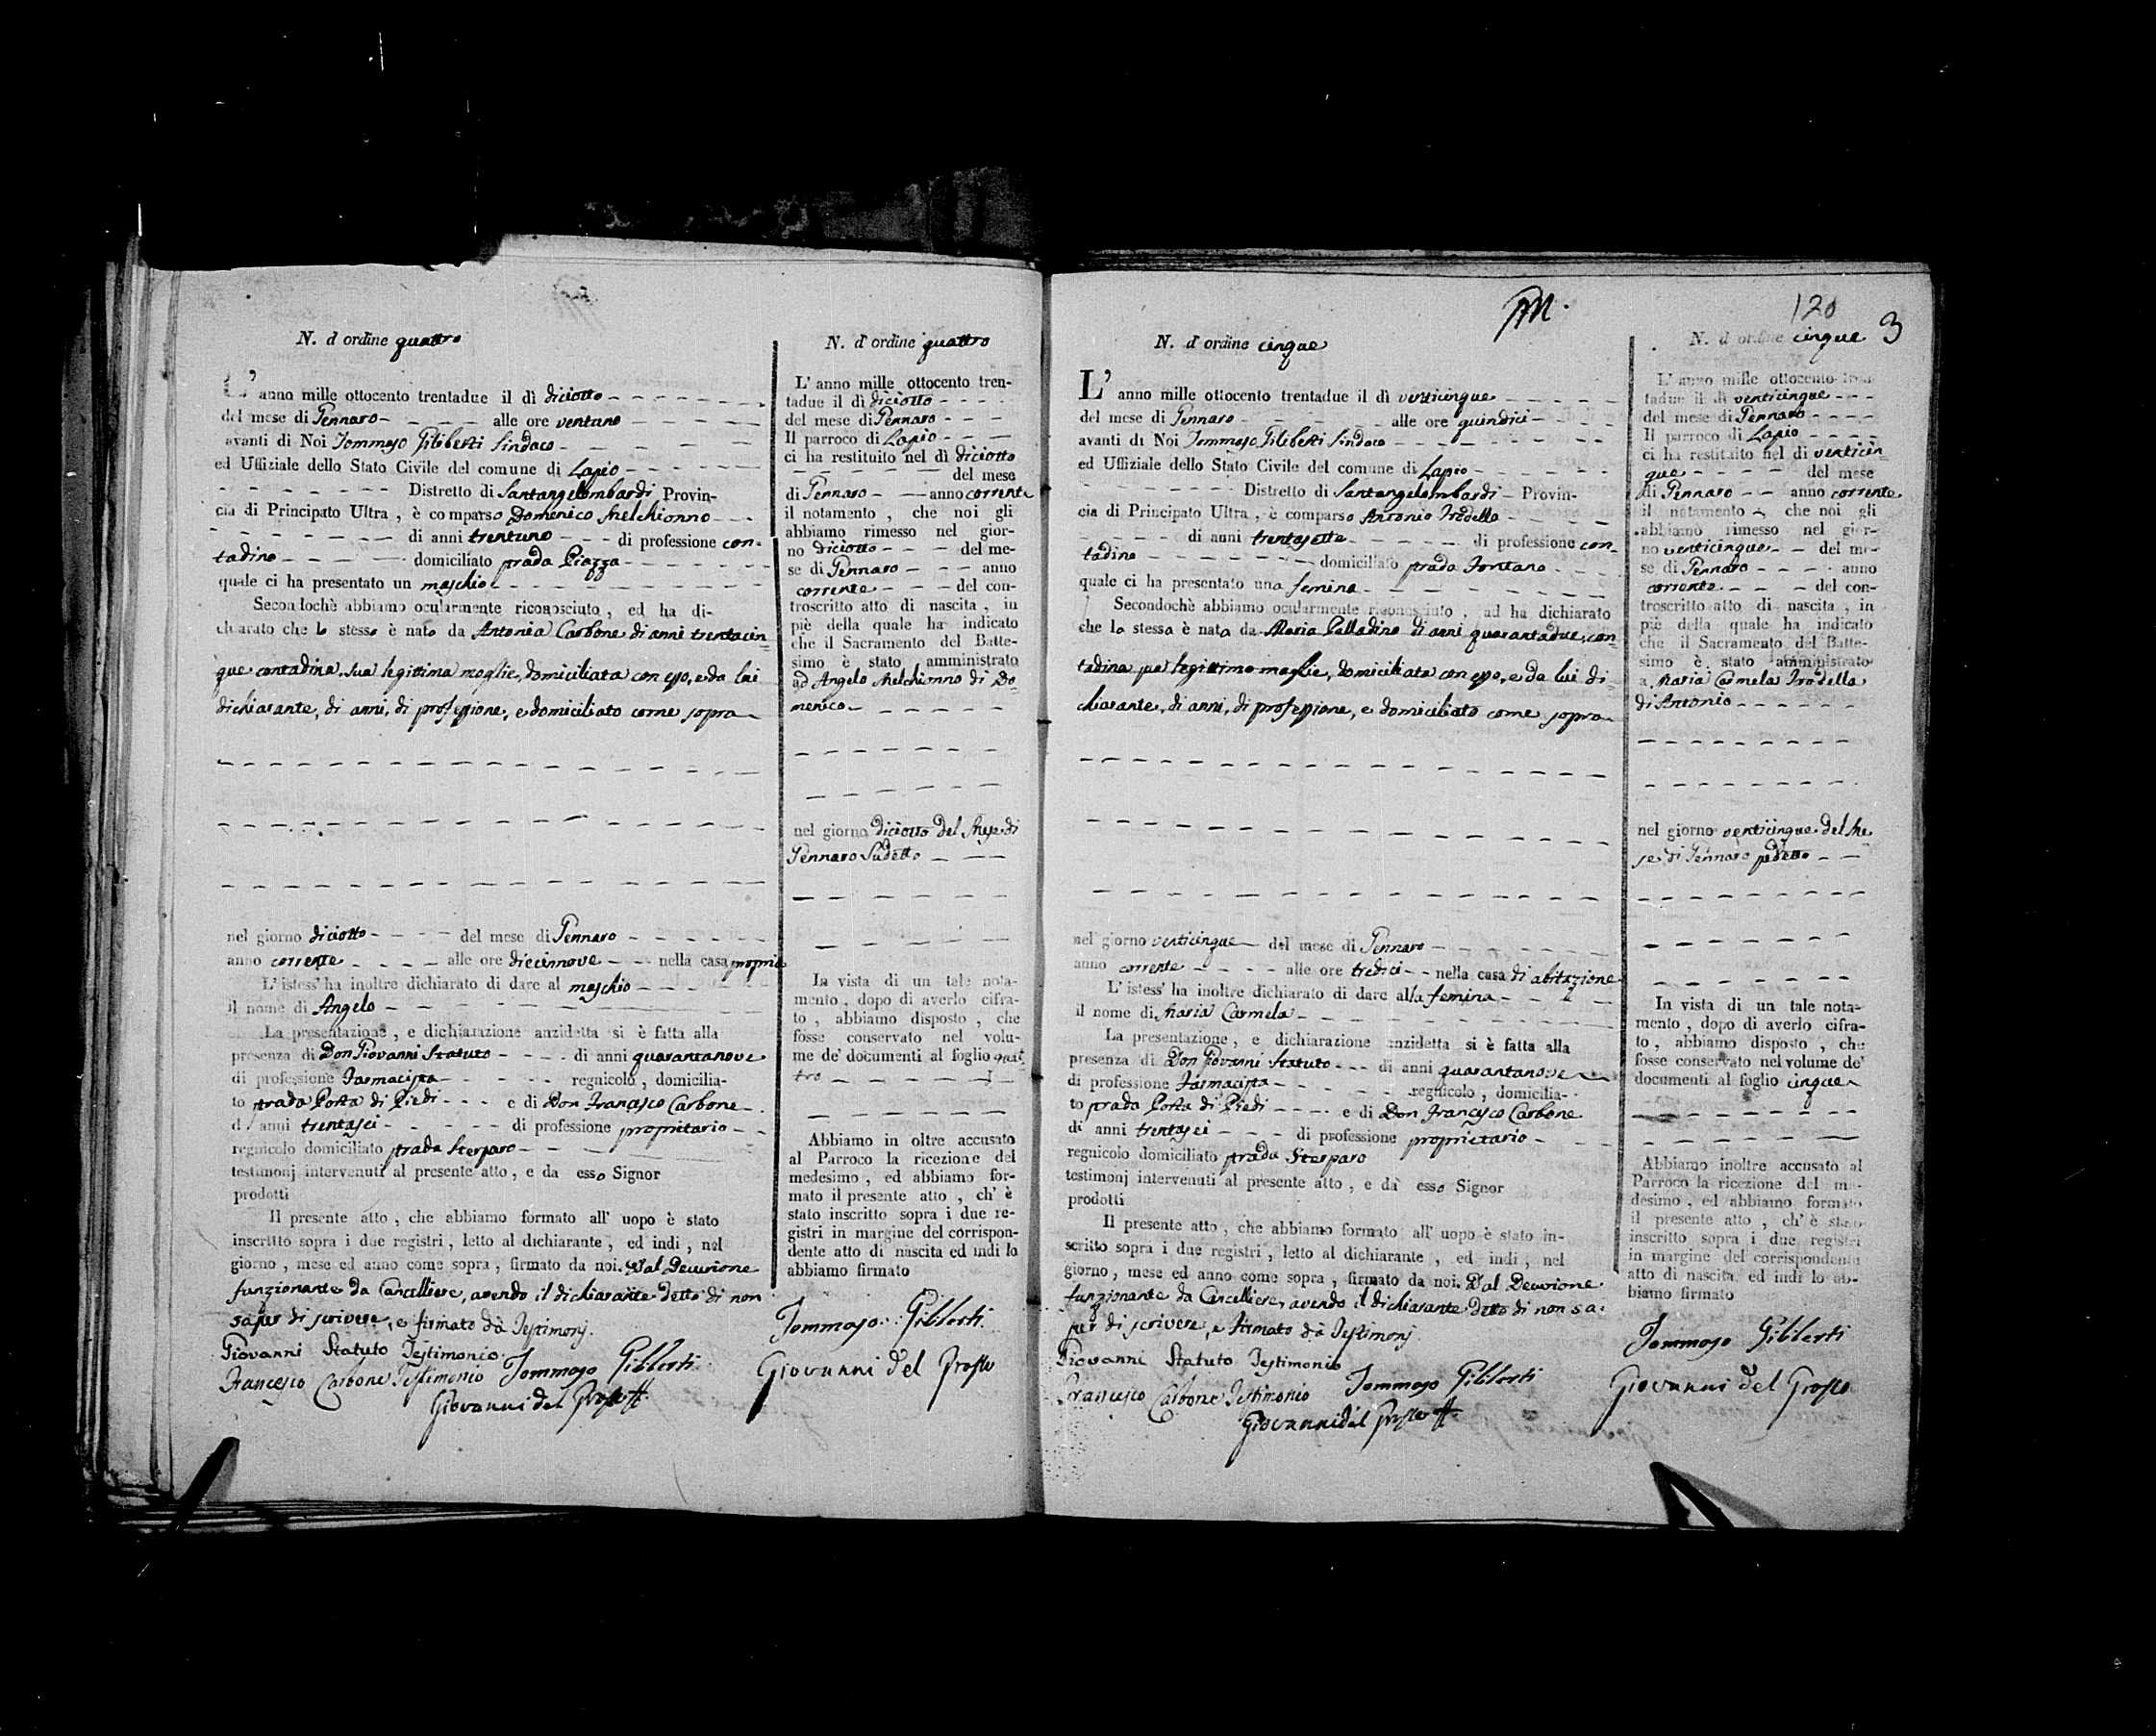 N. d'ordine quattro
L' anno mille ottocento trentadue il dì diciotto
del mese di Gennaro alle ore ventuno
avanti di Noi Tommaso Giliberti Sindaco
ed Uffiziale dello Stato Civile del comune di Lapio
Distretto di Santangelombardi Provin-
cia di Principato Ultra, è comparso Domenico Melchionno
di anni trentuno di professione con-
tadino domiciliato strada Piazza
quale ci ha presentato un maschio
Secondochè abbiamo ocularmente riconosciuto, ed ha di-
chiarato che lo stesso è nato da Antonia Carbone di anni trentacin
que contadina, sua legittima moglie, domiciliata con esso, e da lui
dichiarante, di anni, di professione, e domiciliato come sopra
nel giorno diciotto del mese di Gennaro
anno corrente alle ore diecinnove nella casa propria
L' istess' ha inoltre dichiarato di dare al maschio
il nome di Angelo
La presentazione, e dichiarazione anzidetta si è fatta alla
presenza di Don Giovanni Statuto di anni quarantanove
di professione Farmacista regnicolo, domicilia-
to strada Porta di Piedi e di Don Francesco Carbone
di anni trentasei di professione proprietario
regnicolo domiciliato strada Sterparo
testimonj intervenuti al presente atto, e da esso Signor
prodotti
Il presente atto, che abbiamo formato all' uopo è stato
inscritto sopra i due registri, letto al dichiarante, ed indi, nel
giorno, mese ed anno come sopra, firmato da noi. Dal Decurione
funzionante da Cancelliere, avendo il dichiarante detto di non
saper di scrivere, e firmato dà Testimonj.
Giovanni Statuto Testimonio
Francesco Carbone Testimonio Tommaso Giliberti
Giovanni del Grosso
N. d'ordine quattro
L' anno mille ottocento tren-
tadue il dì diciotto
del mese di Gennaro
Il parroco di Lapio
ci ha restituito nel dì diciotto
del mese
di Gennaro anno corrente
il notamento, che noi gli
abbiamo rimesso nel gior-
no diciotto del me-
se di Gennaro anno
corrente del con-
troscritto atto di nascita, in
piè della quale ha indicato
che il Sacramento del Batte-
simo è stato amministrato
ad Angelo Melchionno di Do-
menico
nel giorno diciotto del Mese di
Gennaro Sudetto
In vista di un tale nota-
mento, dopo di averlo cifra-
to, abbiamo disposto, che
fosse conservato nel volu-
me de' documenti al foglio quat
tro
Abbiamo in oltre accusato
al Parroco la ricezione del
medesimo, ed abbiamo for-
mato il presente atto, ch' è
stato inscritto sopra i due re-
gistri in margine del corrispon-
dente atto di nascita ed indi lo
abbiamo firmato
Tommaso Giliberti
Giovanni del Grosso
120
3
N. d'ordine cinque
L' anno mille ottocento trentadue il dì venticinque
del mese di Gennaro alle ore quindici
avanti di Noi Tommaso Giliberti Sindaco
ed Uffiziale dello Stato Civile del comune di Lapio
Distretto di Santangelombardi Provin-
cia di Principato Ultra, è comparso Antonio Trodella
di anni trentasette di professione con-
tadino domiciliato strada Fontana
quale ci ha presentato una femina
Secondochè abbiamo ocularmente riconosciuto, ad ha dichiarato
che la stessa è nata da Maria Palladino di anni quarantadue, con-
tadina sua legittima moglie, domiciliata con esso, e da lui di-
chiarante, di anni, di professione, e domiciliato come sopra
nel giorno venticinque del mese di Gennaro
anno corrente alle ore tredici nella casa di abitazione
L' istess' ha inoltre dichiarato di dare alla femina
il nome di Maria Carmela
La presentazione, e dichiarazione anzidetta si è fatta alla
presenza di Don Giovanni Statuto di anni quarantanove
di professione Farmacista regnicolo, domicilia-
to strada Porta di Piedi e di Don Francesco Carbone
di anni trentasei di professione proprietario
regnicolo domiciliato strada Sterparo
testimonj intervenuti al presente atto, e dà esso Signor
prodotti
Il presente atto, che abbiamo formato all' uopo è stato in-
scritto sopra i due registri, letto al dichiarante, ed indi, nel
giorno, mese ed anno come sopra, firmato da noi. Dal Decurione
funzionante da Cancelliere, avendo il dichiarante detto di non sa-
per di scrivere, e firmato dà Testimonj.
Giovanni Statuto Testimonio
Francesco Carbone Testimonio Tommaso Giliberti
Giovanni del Grosso
N. d'ordine cinque
L' anno mille ottocento tren-
tadue il dì venticinque
del mese di Gennaro
Il parroco di Lapio
ci ha restituito nel dì venticin-
que del mese
di Gennaro anno corrente
il notamento, che noi gli
abbiamo rimesso nel gior-
no venticinque del me-
se di Gennaro anno
corrente del con-
troscritto atto di nascita, in
piè della quale ha indicato
che il Sacramento del Batte-
simo è stato amministrato
a Maria Carmela Trodella
di Antonio
nel giorno venticinque del Me
se di Gennaro sudetto
In vista di un tale nota-
mento, dopo di averlo cifra-
to, abbiamo disposto, che
fosse conservato nel volume de'
documenti al foglio cinque
Abbiamo inoltre accusato al
Parroco la ricezione del me-
desimo, ed abbiamo formato
il presente atto, ch' è stato
inscritto sopra i due registri
in margine del corrispondente
atto di nascita, ed indi lo ab-
biamo firmato
Tommaso Giliberti
Giovanni del Grosso